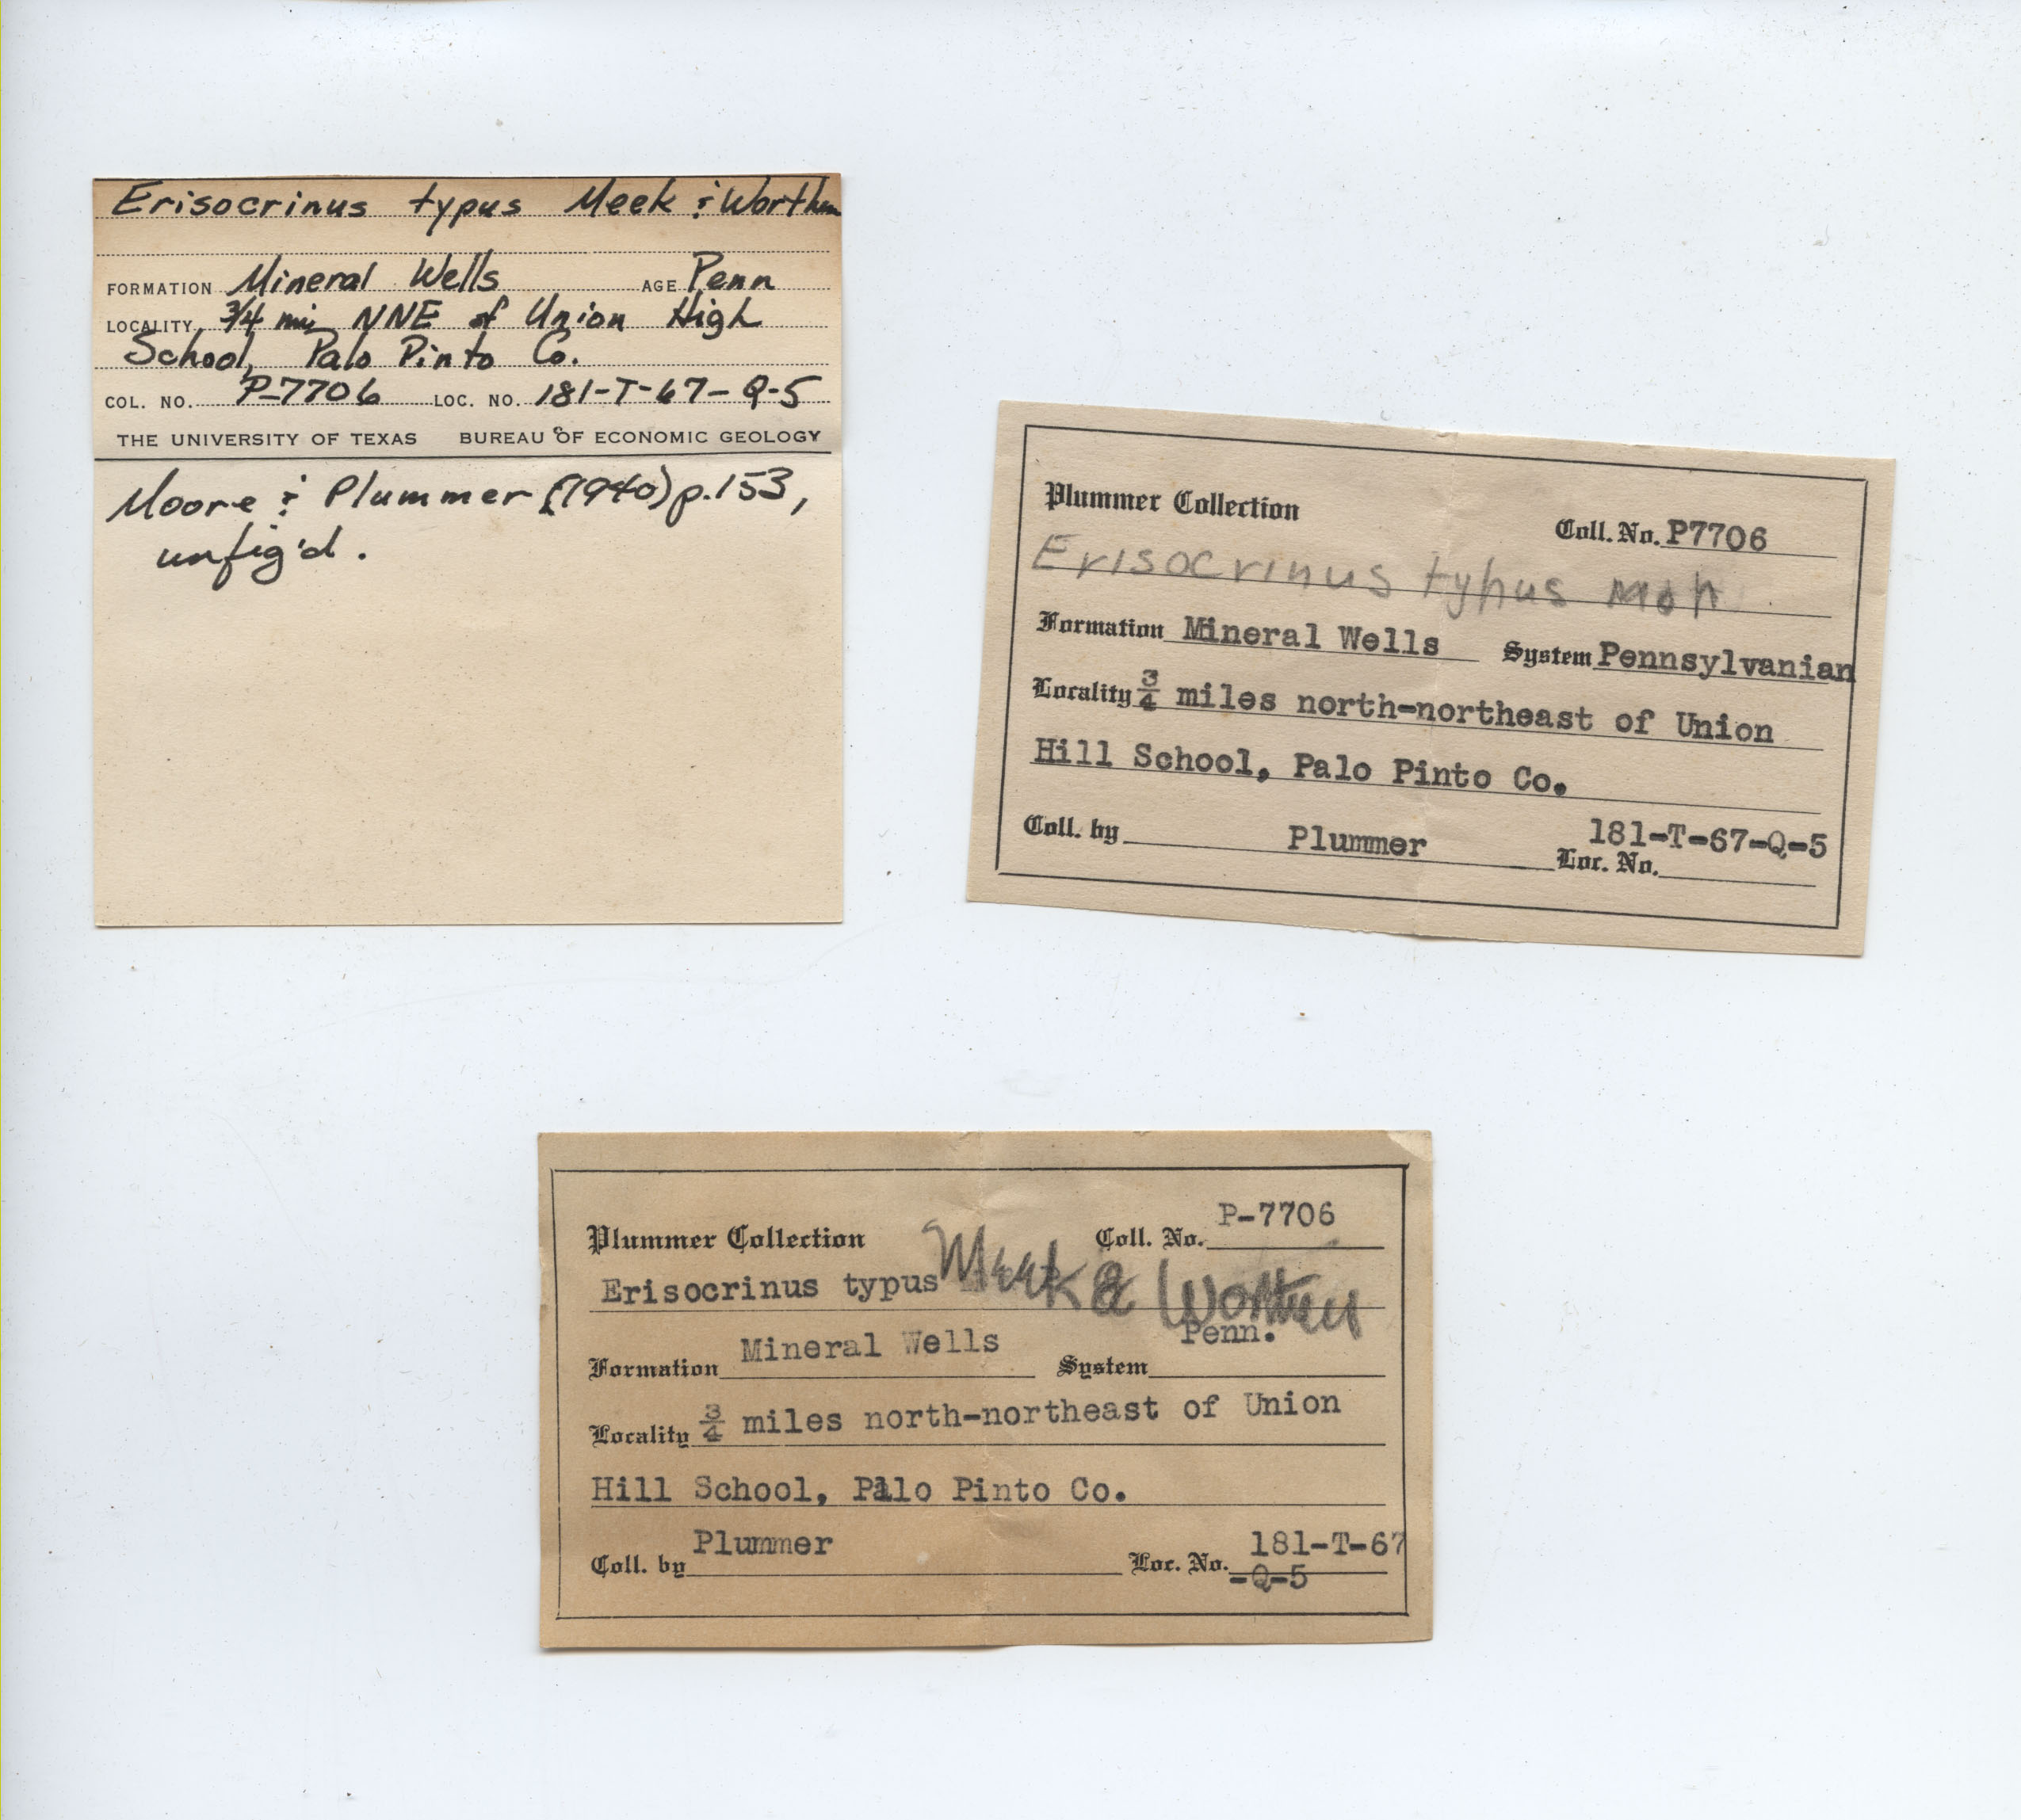 Erisocrinus typus Meek & Worthen
FORMATION Mineral Wells AGE Penn
LOCALITY 3/4 mi NNE of Union High
School, Palo Pinto Co.
COL. NO. P-7706 LOC. NO. 181-T-67-Q-5
THE UNIVERSITY OF TEXAS BUREAU OF ECONOMIC GEOLOGY
Moore & Plummer (1940) p.153,
unfig'd.
Plummer Collection
Coll. No. P7706
Erisocrinus typus
Formation Mineral Wells System Pennsylvanian
Locality 3/4 miles north-northeast of Union
Hill School, Palo Pinto Co.
Coll. by Plummer Loc. No. 181-T-67-Q-5
Plummer Collection Coll. No. P-7706
Erisocrinus typus Meek & Worthen
Formation Mineral Wells System Penn.
Locality 3/4 miles north-northeast of Union
Hill School, Palo Pinto Co.
Coll. by Plummer Loc. No. 181-T-67
-Q-5